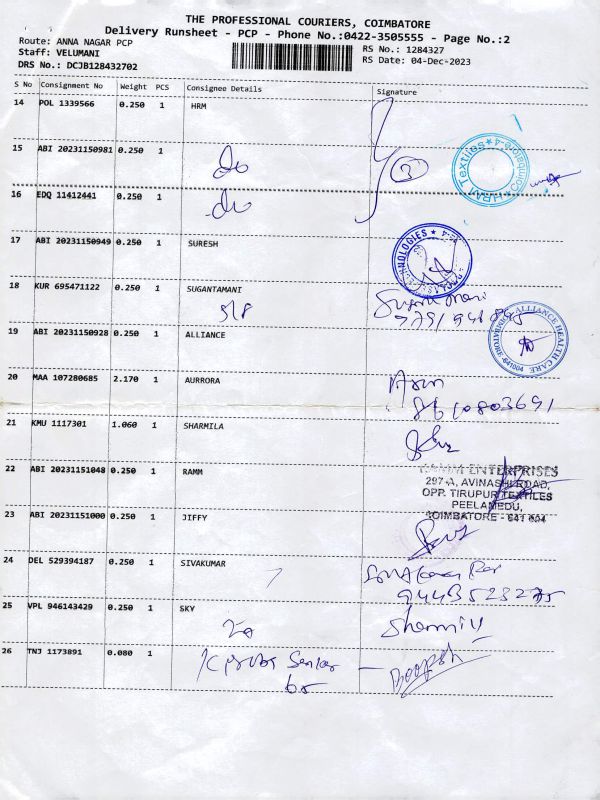 THE PROFESSIONAL COURIERS, COIMBATORE
Delivery Runsheet - PCP - Phone No.:0422-3505555 - Page No.:2
Route: ANNA NAGAR PCP
Staff: VELUMANI
DRS No.: DCJB128432702
RS No.: 1284327
RS Date: 04-Dec-2023
S No Consignment No Weight PCS Consignee Details Signature
14 POL 1339566 0.250 1 HRM
15 ABI 20231150981 0.250 1
do
3
HRM Textiles * Coimbatore-4
16 EDQ 11412441 0.250 1
do
17 ABI 20231150949 0.250 1 SURESH
18 KUR 695471122 0.250 1 SUGANTAMANI
19 ABI 20231150928 0.250 1 ALLIANCE
ALLIANCE HEALTH CARE
20 MAA 107280685 2.170 1 AURRORA
21 KMU 1117301 1.060 1 SHARMILA
22 ABI 20231151048 0.250 1 RAMM
ENTERPRISES
297-A, AVINASHI ROAD,
OPP. TIRUPUR TEXTILES
PEELAMEDU,
COIMBATORE - 641 004
23 ABI 20231151000 0.250 1 JIFFY
24 DEL 529394187 0.250 1 SIVAKUMAR
25 VPL 946143429 0.250 1 SKY
26 TNJ 1173891 0.080 1